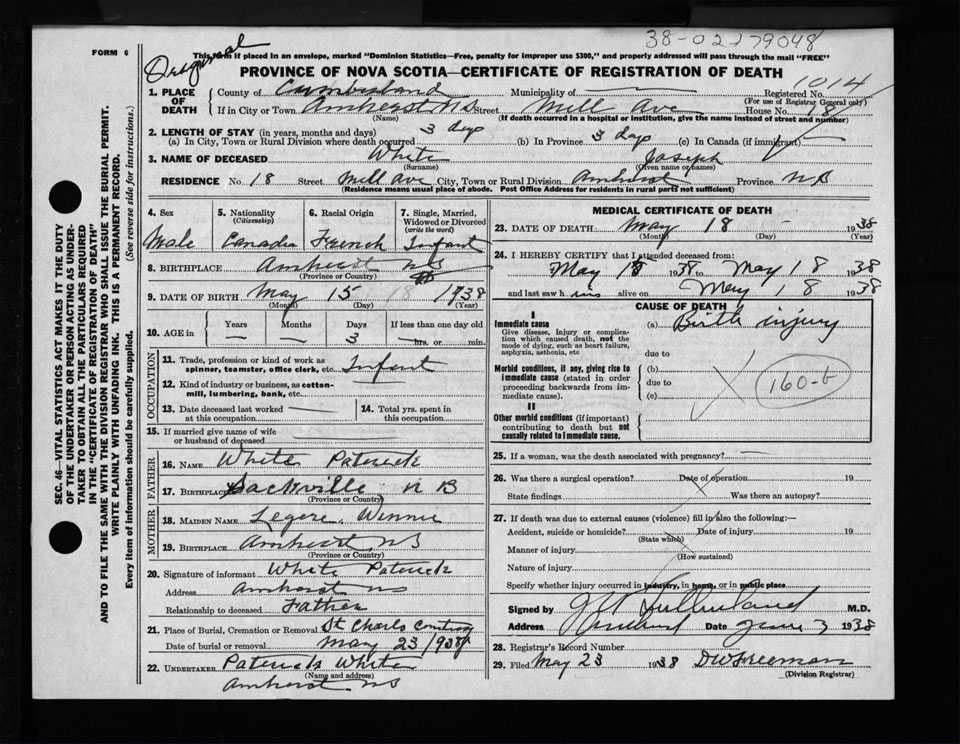 38-02179048
FORM 6
Original
This form if placed in an envelope, marked "Dominion Statistics—Free, penalty for improper use $300," and properly addressed will pass through the mail "FREE"
PROVINCE OF NOVA SCOTIA—CERTIFICATE OF REGISTRATION OF DEATH
1. PLACE OF DEATH
County of Cumberland Municipality of Registered No. 1014
(For use of Registrar General only)
If in City or Town Amherst NS Street Mill Ave House No. 18
(Name) (If death occurred in a hospital or institution, give the name instead of street and number)
2. LENGTH OF STAY (in years, months and days)
(a) In City, Town or Rural Division where death occurred 3 days (b) In Province 3 days (c) In Canada (if immigrant)
3. NAME OF DECEASED White Joseph
(Surname) (Given name or names)
RESIDENCE No. 18 Street Mill Ave City, Town or Rural Division Amherst Province NS
(Residence means usual place of abode. Post Office Address for residents in rural parts not sufficient)
4. Sex
Male
5. Nationality
(Citizenship)
Canadia
6. Racial Origin
French
7. Single, Married, Widowed or Divorced
(write the word)
Infant
8. BIRTHPLACE Amherst NS
(Province or Country)
9. DATE OF BIRTH May 15 1938
(Month) (Day) (Year)
10. AGE in
Years Months Days If less than one day old
— — 3 hrs. or min.
OCCUPATION
11. Trade, profession or kind of work as spinner, teamster, office clerk, etc. Infant
12. Kind of industry or business, as cotton-mill, lumbering, bank, etc.
13. Date deceased last worked at this occupation
14. Total yrs. spent in this occupation
15. If married give name of wife or husband of deceased
FATHER
16. NAME White Patrick
17. BIRTHPLACE Sackville N B
(Province or Country)
MOTHER
18. MAIDEN NAME Legere, Winnie
19. BIRTHPLACE Amherst NS
(Province or Country)
20. Signature of informant White Patrick
Address Amherst NS
Relationship to deceased Father
21. Place of Burial, Cremation or Removal St Charls
Date of burial or removal May 23/938
22. UNDERTAKER Patrick White
(Name and address)
Amherst NS
MEDICAL CERTIFICATE OF DEATH
23. DATE OF DEATH May 18 1938
(Month) (Day) (Year)
24. I HEREBY CERTIFY that I attended deceased from:
May 15 1938 to May 18 1938
and last saw him alive on May 18 1938
CAUSE OF DEATH
I
Immediate cause
Give disease, injury or complication which caused death, not the mode of dying, such as heart failure, asphyxia, asthenia, etc
(a) Birth injury
due to
Morbid conditions, if any, giving rise to immediate cause (stated in order proceeding backwards from immediate cause).
(b)
due to
(c)
160-b
II
Other morbid conditions (if important) contributing to death but not causally related to immediate cause.
25. If a woman, was the death associated with pregnancy?
26. Was there a surgical operation? Date of operation 19
State findings Was there an autopsy?
27. If death was due to external causes (violence) fill in also the following:—
Accident, suicide or homicide? Date of injury 19
(State which)
Manner of injury
(How sustained)
Nature of injury
Specify whether injury occurred in industry, in home, or in public place
Signed by Sutherland M.D.
Address Amherst Date June 3 1938
28. Registrar's Record Number
29. Filed May 23 1938 DW Freeman
(Division Registrar)
SEC. 46—VITAL STATISTICS ACT MAKES IT THE DUTY
OF THE UNDERTAKER OR PERSON ACTING AS UNDER-
TAKER TO OBTAIN ALL THE PARTICULARS REQUIRED
IN THE "CERTIFICATE OF REGISTRATION OF DEATH"
AND TO FILE THE SAME WITH THE DIVISION REGISTRAR WHO SHALL ISSUE THE BURIAL PERMIT.
WRITE PLAINLY WITH UNFADING INK. THIS IS A PERMANENT RECORD.
Every item of information should be carefully supplied. (See reverse side for instructions.)